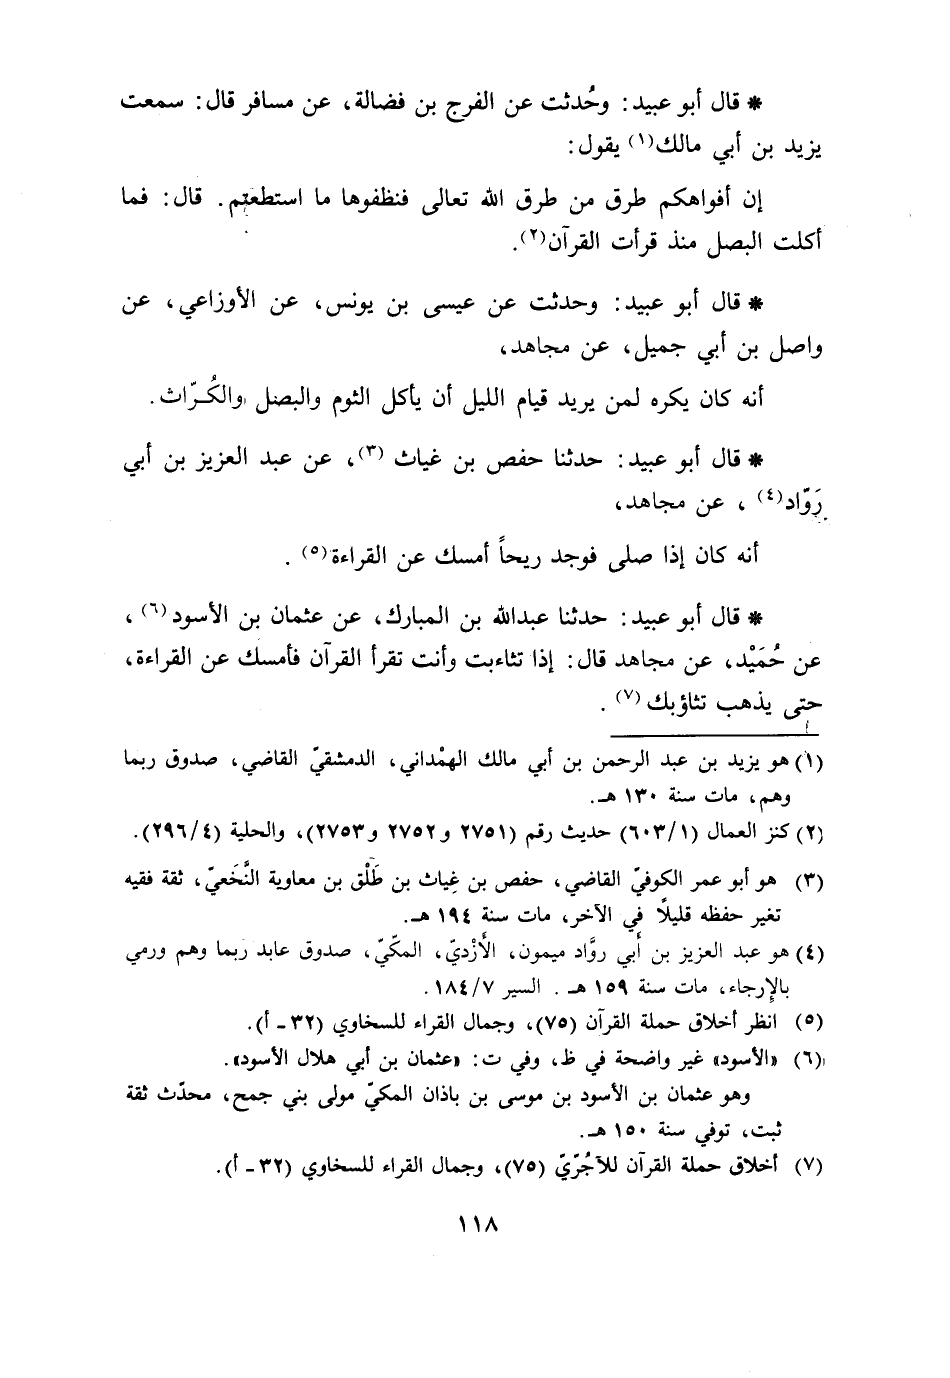 * قال أبو عبيد: وحُدثت عن الفرج بن فضالة، عن مسافر قال: سمعت
يزيد بن أبي مالك(١) يقول:
إن أفواهكم طرق من طرق الله تعالى فنظفوها ما استطعتم. قال: فما
أكلت البصل منذ قرأت القرآن(٢).
* قال أبو عبيد: وحدثت عن عيسى بن يونس، عن الأوزاعي، عن
واصل بن أبي جميل، عن مجاهد،
أنه كان يكره لمن يريد قيام الليل أن يأكل الثوم والبصل والكُرّاث.
* قال أبو عبيد: حدثنا حفص بن غياث (٣)، عن عبد العزيز بن أبي
رَوّاد(٤) ، عن مجاهد،
أنه كان إذا صلى فوجد ريحاً أمسك عن القراءة(٥) .
* قال أبو عبيد: حدثنا عبدالله بن المبارك، عن عثمان بن الأسود(٦) ،
عن حُمَيْد، عن مجاهد قال: إذا تثاءبت وأنت تقرأ القرآن فأمسك عن القراءة،
حتى يذهب تثاؤبك (٧) .
(١) هو يزيد بن عبد الرحمن بن أبي مالك الهمْداني، الدمشقيّ القاضي، صدوق ربما
وهم، مات سنة ١٣٠ هـ.
(٢) كنز العمال (٦٠٣/١) حديث رقم (٢٧٥١ و ٢٧٥٢ و٢٧٥٣)، والحلية (٢٩٦/٤).
(٣) هو أبو عمر الكوفيّ القاضي، حفص بن غياث بن طَلْق بن معاوية النَّخَعيّ، ثقة فقيه
تغير حفظه قليلاً في الآخر، مات سنة ١٩٤ هـ.
(٤) هو عبد العزيز بن أبي روَّاد ميمون، الأَزْديّ، المكيّ، صدوق عابد ربما وهم ورمي
بالإِرجاء، مات سنة ١٥٩ هـ . السير ١٨٤/٧.
(٥) انظر أخلاق حملة القرآن (٧٥)، وجمال القراء للسخاوي (٣٢ - أ).
(٦) «الأسود» غير واضحة في ظ، وفي ت: «عثمان بن أبي هلال الأسود».
وهو عثمان بن الأسود بن موسى بن باذان المكيّ مولى بني جمح، محدّث ثقة
ثبت، توفي سنة ١٥٠ هـ.
(٧) أخلاق حملة القرآن للآجُرّيّ (٧٥)، وجمال القراء للسخاوي (٣٢ - أ).
١١٨